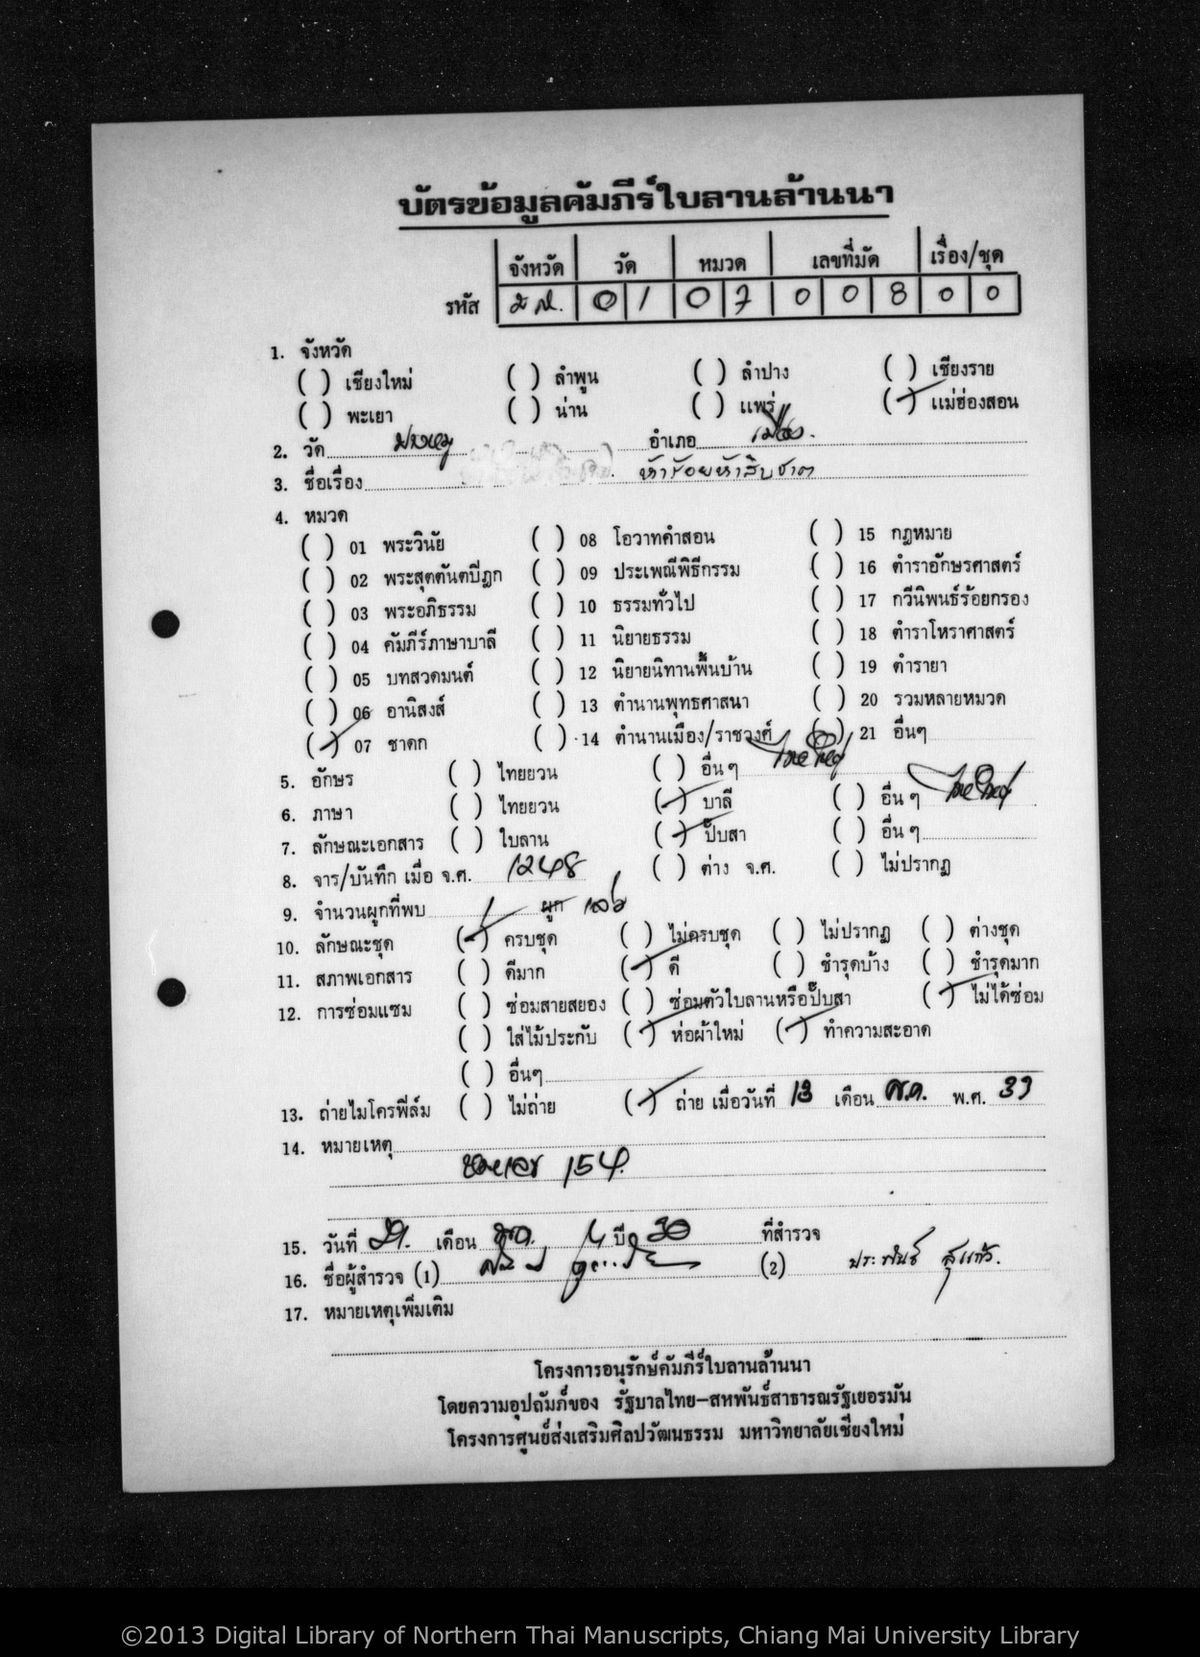 บัตรข้อมูลคัมภีร์ใบลานล้านนา
จังหวัด วัด หมวด เลขที่มัด เรื่อง/ชุด
รหัส มส. 01 07 008 00
1. จังหวัด
( ) เชียงใหม่ ( ) ลำพูน ( ) ลำปาง ( ) เชียงราย
( ) พะเยา ( ) น่าน ( ) แพร่ (✓) แม่ฮ่องสอน
2. วัด ปางหมู อำเภอ เมือง.
3. ชื่อเรื่อง ห้าร้อยห้าสิบชาต
4. หมวด
( ) 01 พระวินัย ( ) 08 โอวาทคำสอน ( ) 15 กฎหมาย
( ) 02 พระสุตตันตปิฎก ( ) 09 ประเพณีพิธีกรรม ( ) 16 ตำราอักษรศาสตร์
( ) 03 พระอภิธรรม ( ) 10 ธรรมทั่วไป ( ) 17 กวีนิพนธ์ร้อยกรอง
( ) 04 คัมภีร์ภาษาบาลี ( ) 11 นิยายธรรม ( ) 18 ตำราโหราศาสตร์
( ) 05 บทสวดมนต์ ( ) 12 นิยายนิทานพื้นบ้าน ( ) 19 ตำรายา
( ) 06 อานิสงส์ ( ) 13 ตำนานพุทธศาสนา ( ) 20 รวมหลายหมวด
(✓) 07 ชาดก ( ) 14 ตำนานเมือง/ราชวงศ์ ( ) 21 อื่นๆ
5. อักษร ( ) ไทยยวน ( ) อื่น ๆ ไทยใหญ่
6. ภาษา ( ) ไทยยวน (✓) บาลี ( ) อื่น ๆ ไทยใหญ่
7. ลักษณะเอกสาร ( ) ใบลาน (✓) ปั๊บสา ( ) อื่น ๆ
8. จาร/บันทึก เมื่อ จ.ศ. 1248 ( ) ต่าง จ.ศ. ( ) ไม่ปรากฏ
9. จำนวนผูกที่พบ 1 ผูก เล่ม
10. ลักษณะชุด (✓) ครบชุด ( ) ไม่ครบชุด ( ) ไม่ปรากฏ ( ) ต่างชุด
11. สภาพเอกสาร ( ) ดีมาก (✓) ดี ( ) ชำรุดบ้าง ( ) ชำรุดมาก
12. การซ่อมแซม ( ) ซ่อมสายสยอง ( ) ซ่อมตัวใบลานหรือปั๊บสา (✓) ไม่ได้ซ่อม
( ) ใส่ไม้ประกับ (✓) ห่อผ้าใหม่ (✓) ทำความสะอาด
( ) อื่นๆ
13. ถ่ายไมโครฟิล์ม ( ) ไม่ถ่าย (✓) ถ่าย เมื่อวันที่ 13 เดือน พ.ค. พ.ศ. 33
14. หมายเหตุ
154.
15. วันที่ 21. เดือน ปี 30 ที่สำรวจ
16. ชื่อผู้สำรวจ (1) (2) ประพันธ์ สุแก้ว.
17. หมายเหตุเพิ่มเติม
โครงการอนุรักษ์คัมภีร์ใบลานล้านนา
โดยความอุปถัมภ์ของ รัฐบาลไทย-สหพันธ์สาธารณรัฐเยอรมัน
โครงการศูนย์ส่งเสริมศิลปวัฒนธรรม มหาวิทยาลัยเชียงใหม่
©2013 Digital Library of Northern Thai Manuscripts, Chiang Mai University Library